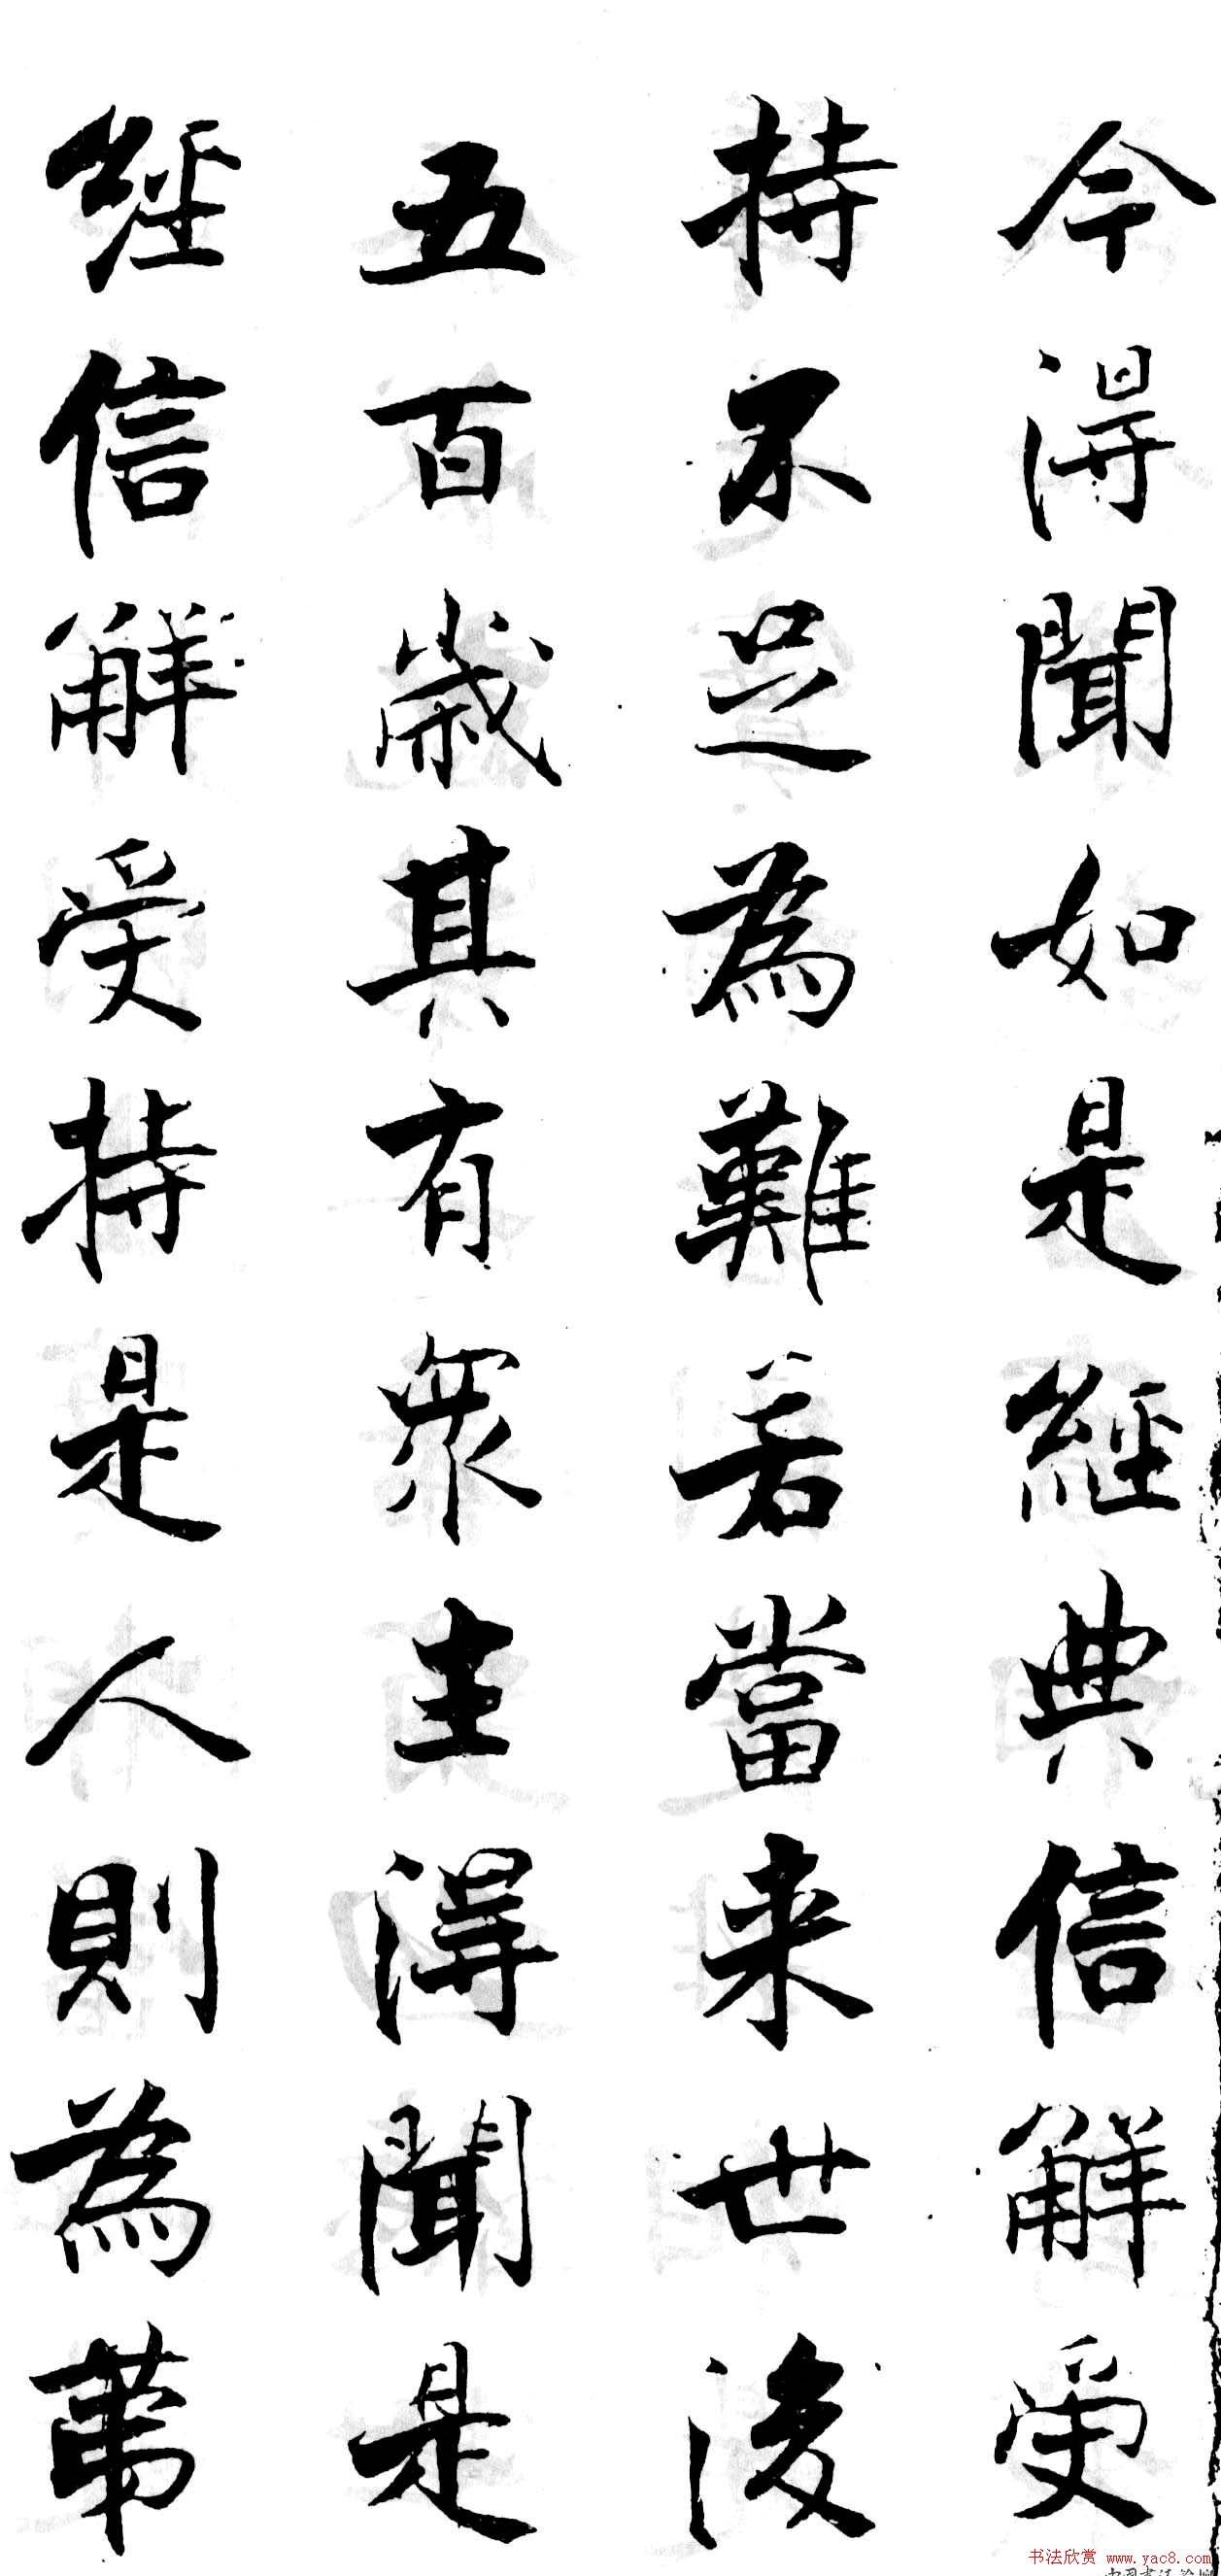 今得聞如是經典信解受
持不足為難若當来世後
五百歲其有衆生得聞是
經信解受持是人則為第
书法欣赏 www.yac8.com